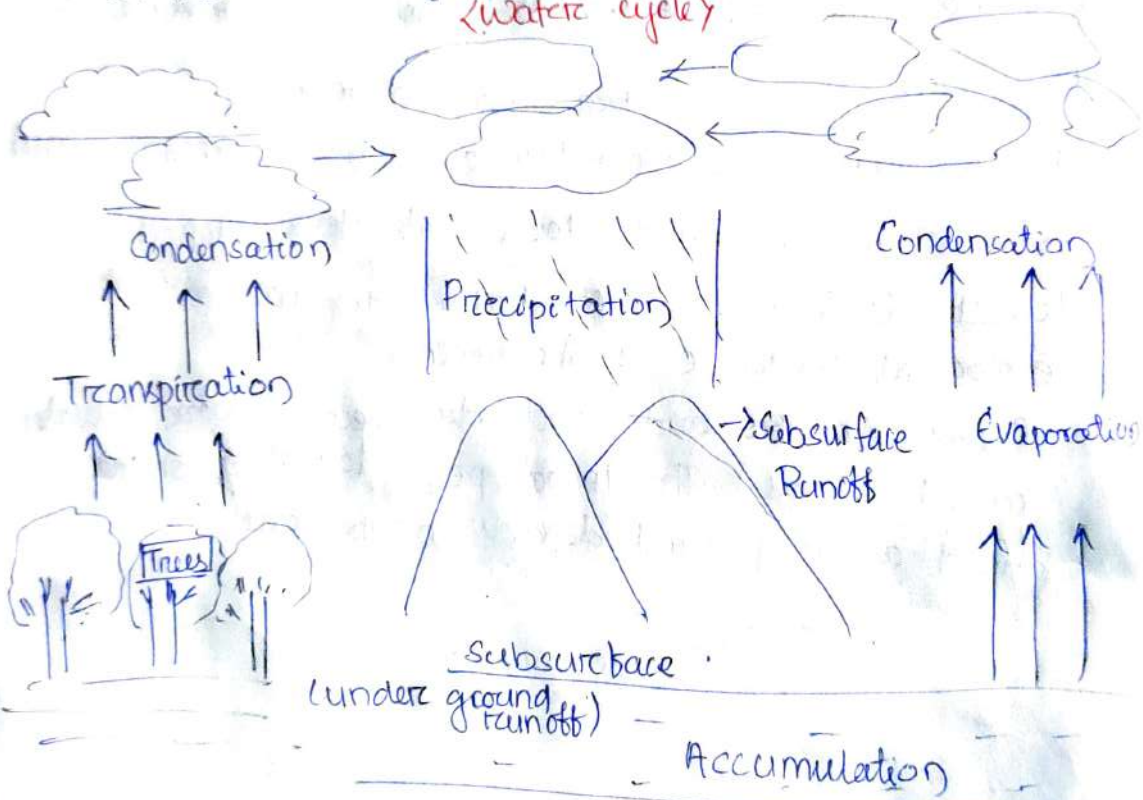 <Water cycle>
Condensation
Condensation
Precipitation
Transpiration
→Subsurface
Runoff
Evaporation
Trees
Subsurface
(under ground
runoff)
Accumulation